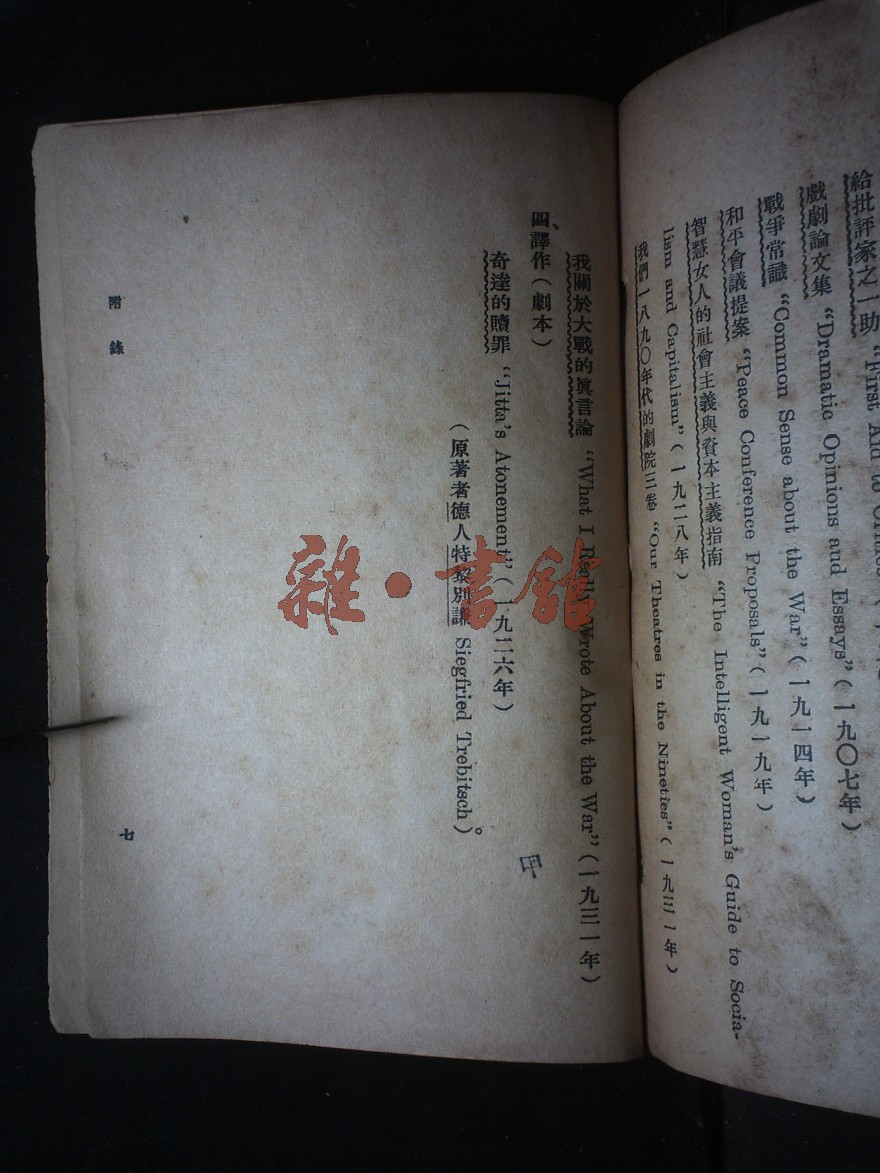 給批評家之一助 "First Aid to
戲劇論文集 "Dramatic Opinions aud Essays"(一九〇七年)
戰爭常識 "Common Sense about the War"(一九一四年)
和平會議提案 "Peace Conference Proposals"(一九一九年)
智慧女人的社會主義與資本主義指南 "The Intelligent Woman's Guide to Socia-
lism and Capitalism"(一九二八年)
我們一八九〇年代的劇院三卷 "Our Theatres in the Nineties"(一九三一年)
我關於大戰的眞言論 "What I Really Wrote About the War"(一九三一年)
四、譯作(劇本)
奇達的贖罪 "Jitta's Atonement"(一九二六年)
(原著者德人特黎別謙 Siegfried Trebitsch)。
甲
附錄
七
雜·書館